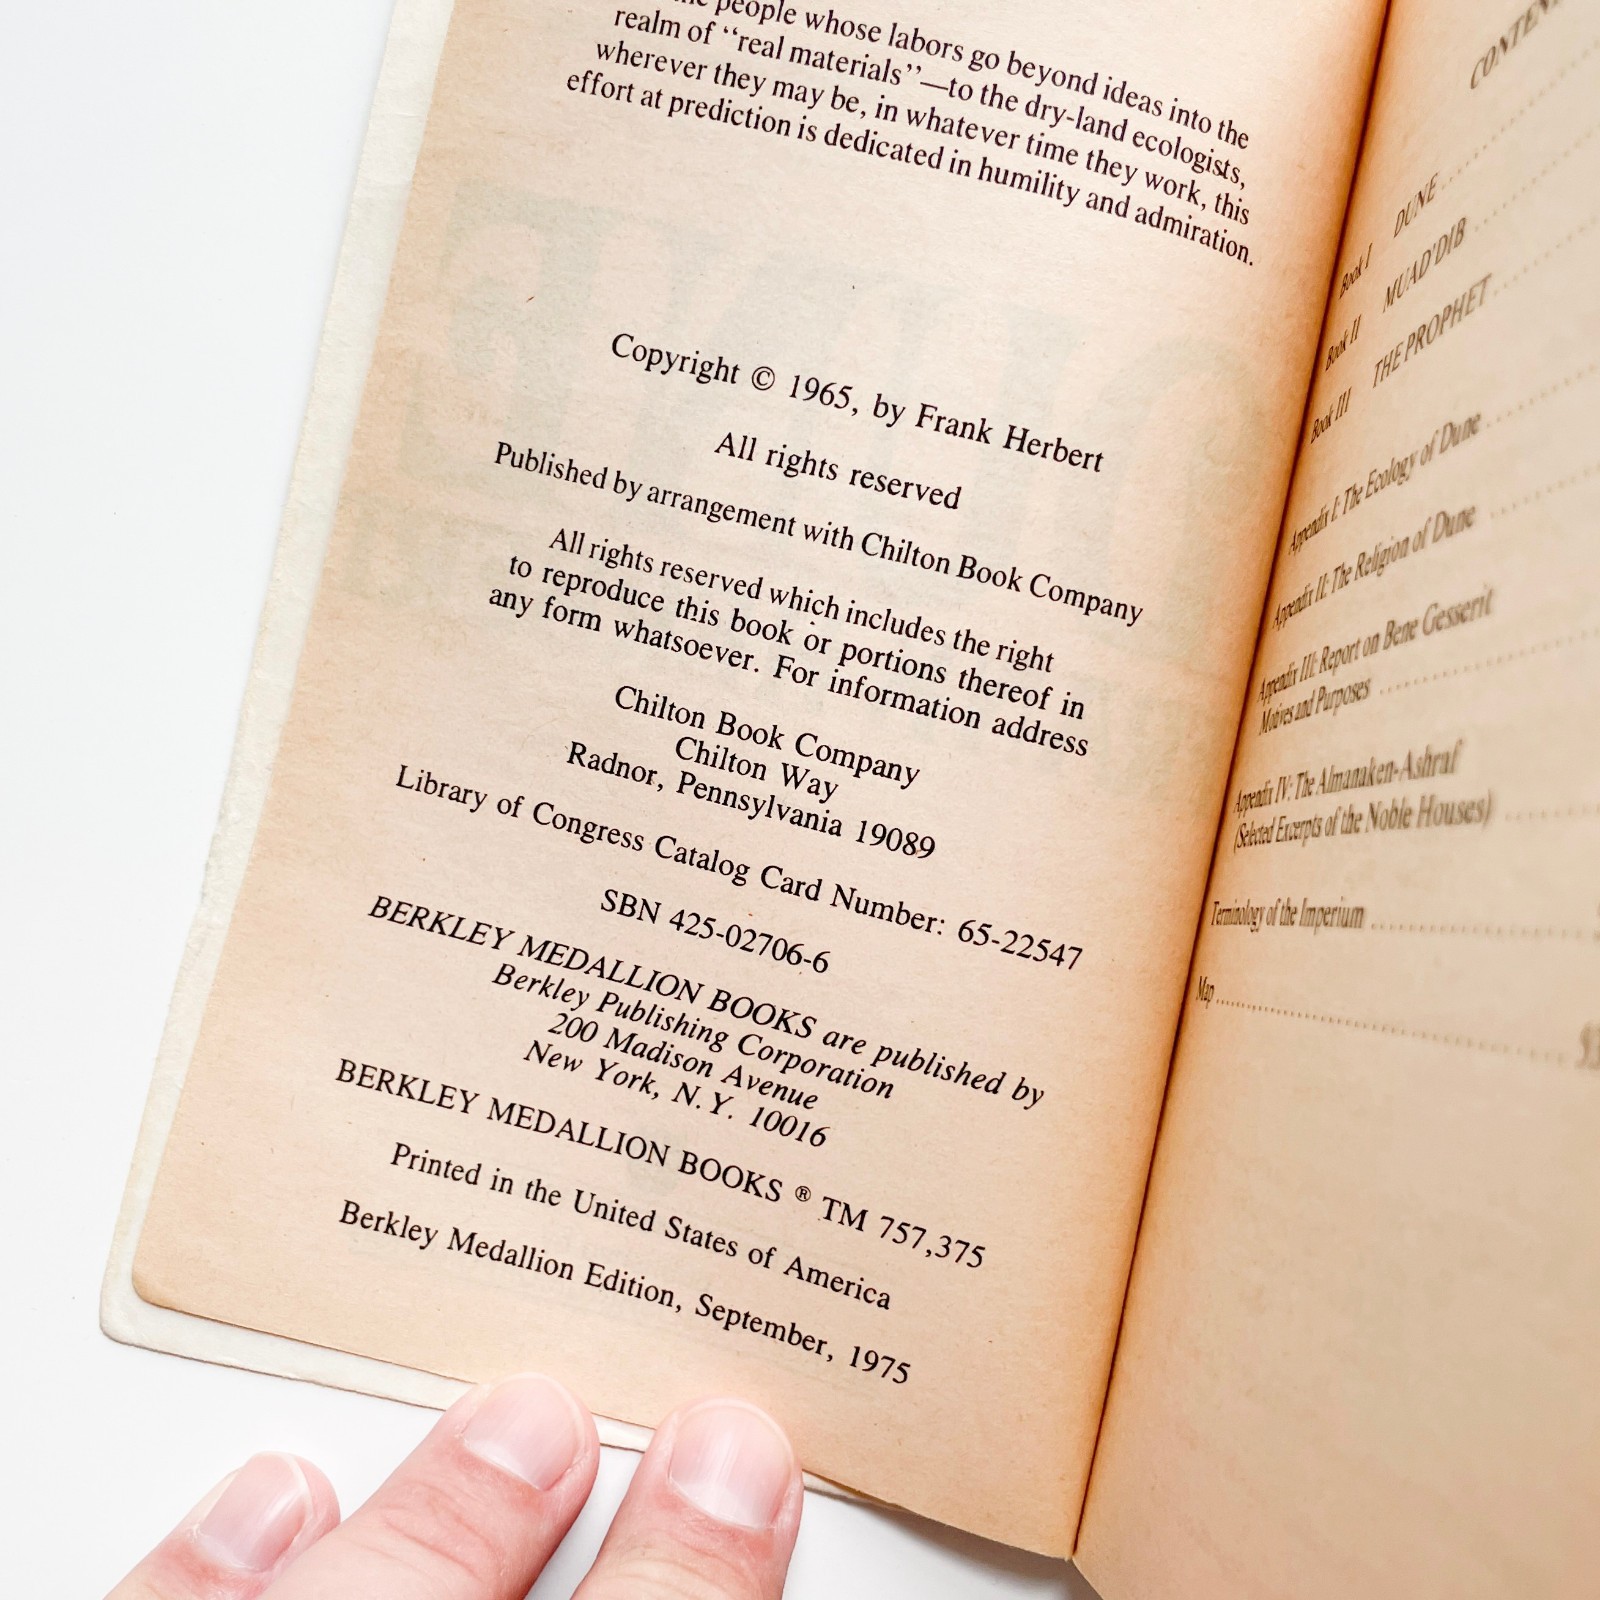 people whose labors go beyond ideas into the
realm of “real materials”—to the dry-land ecologists,
wherever they may be, in whatever time they work, this
effort at prediction is dedicated in humility and admiration.
Copyright © 1965, by Frank Herbert
All rights reserved
Published by arrangement with Chilton Book Company
All rights reserved which includes the right
to reproduce this book or portions thereof in
any form whatsoever. For information address
Chilton Book Company
Chilton Way
Radnor, Pennsylvania 19089
Library of Congress Catalog Card Number: 65-22547
SBN 425-02706-6
BERKLEY MEDALLION BOOKS are published by
Berkley Publishing Corporation
200 Madison Avenue
New York, N.Y. 10016
BERKLEY MEDALLION BOOKS ® TM 757,375
Printed in the United States of America
Berkley Medallion Edition, September, 1975
Book I DUNE
Book II MUAD'DIB
Book III THE PROPHET
Appendix I: The Ecology of Dune
Appendix II: The Religion of Dune
Appendix III: Report on Bene Gesserit
Motives and Purposes
Appendix IV: The Almanaken-Ashraf
(Selected Excerpts of the Noble Houses)
Terminology of the Imperium
Map